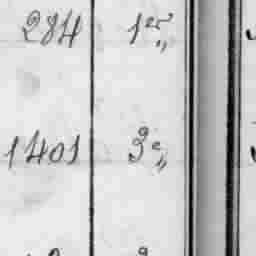 284 1er „
1401 3e „